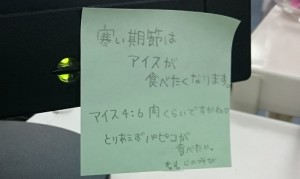 寒い期節は
アイスが
食べたくなります。
アイス4:6肉くらいですかねぇ
とりわえずパピコが
食べたい。